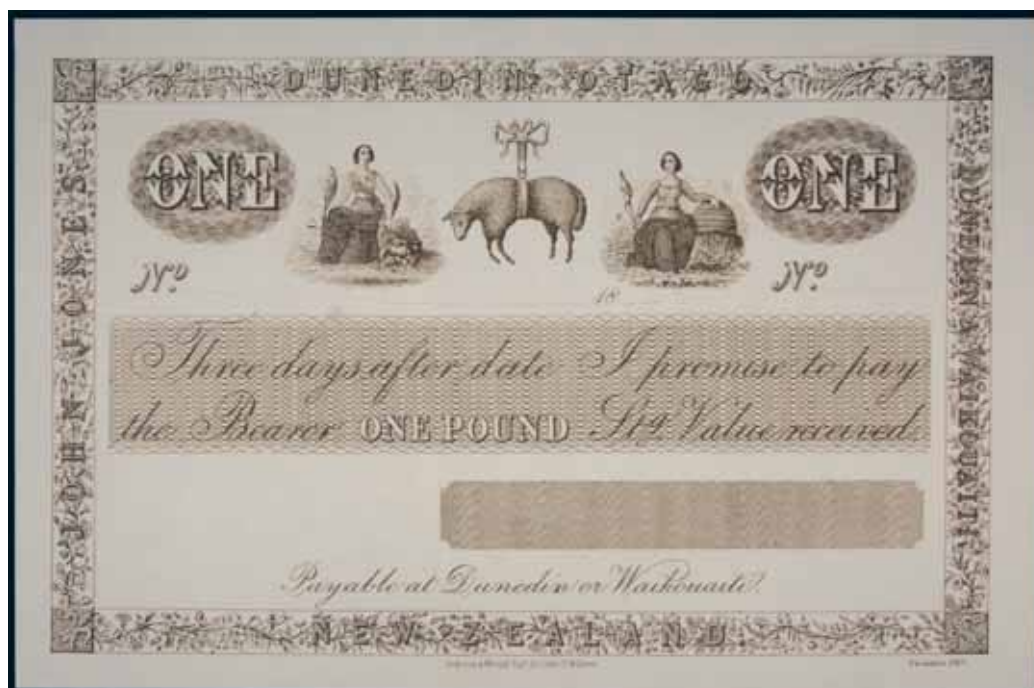 DUNEDIN OTAGO
ONE
ONE
No
No
18
JOHN JONES
DUNEDIN & WAIKOUAITI
Three days after date I promise to pay
the Bearer ONE POUND Stg Value received.
Payable at Dunedin or Waikouaiti.
NEW ZEALAND